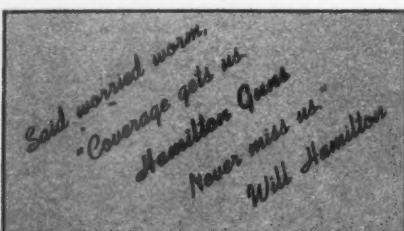 Said worried worm,
"Coverage gets us.
Hamilton Guns
Never miss us."
Will Hamilton